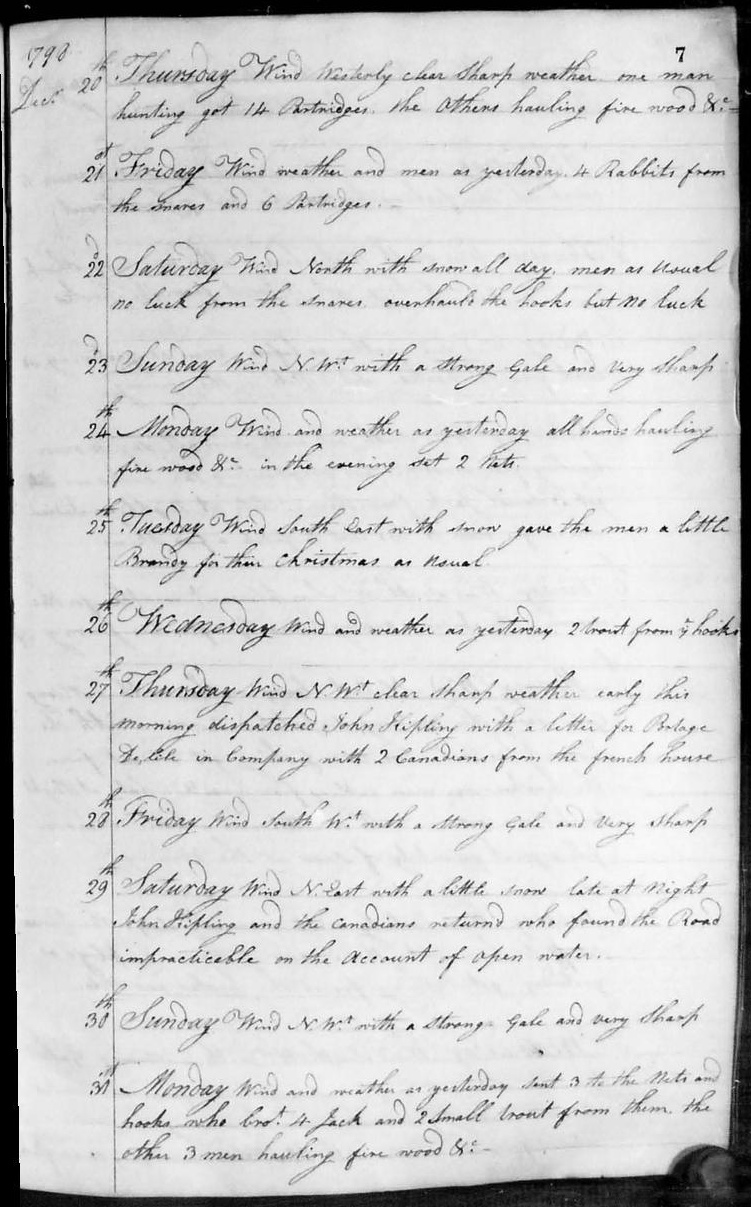 1798
7
Decr
20th Thursday Wind Westerly clear Sharp weather one man
hunting got 14 Partridges. the Others hauling fire wood &c
21st Friday Wind weather and men as yesterday. 4 Rabbits from
the snares and 6 Partridges.
22d Saturday Wind North with snow all day. men as Usual
no luck from the snares overhauld the hooks but no luck
23d Sunday Wind N. Wt with a strong Gale and very sharp
24th Monday Wind and weather as yesterday all hands hauling
fire wood &c in the evening set 2 Nets.
25th Tuesday Wind South East with snow gave the men a little
Brandy for their Christmas as Usual
26th Wednesday Wind and weather as yesterday 2 trout from ye hooks
27th Thursday Wind N. Wt clear sharp weather early this
morning dispatched John Kipling with a letter for Potage
De, Lile in Company with 2 Canadians from the french house
28th Friday Wind South Wt with a strong Gale and very sharp
29th Saturday Wind N. East with a little snow late at Night
John Kipling and the Canadians returnd who found the Road
impracticeble on the account of open water.
30th Sunday Wind N. Wt with a strong Gale and very sharp
31st Monday Wind and weather as yesterday sent 3 to the Nets and
hooks who brot 4 Jack and 2 small trout from them the
other 3 men hauling fire wood &c